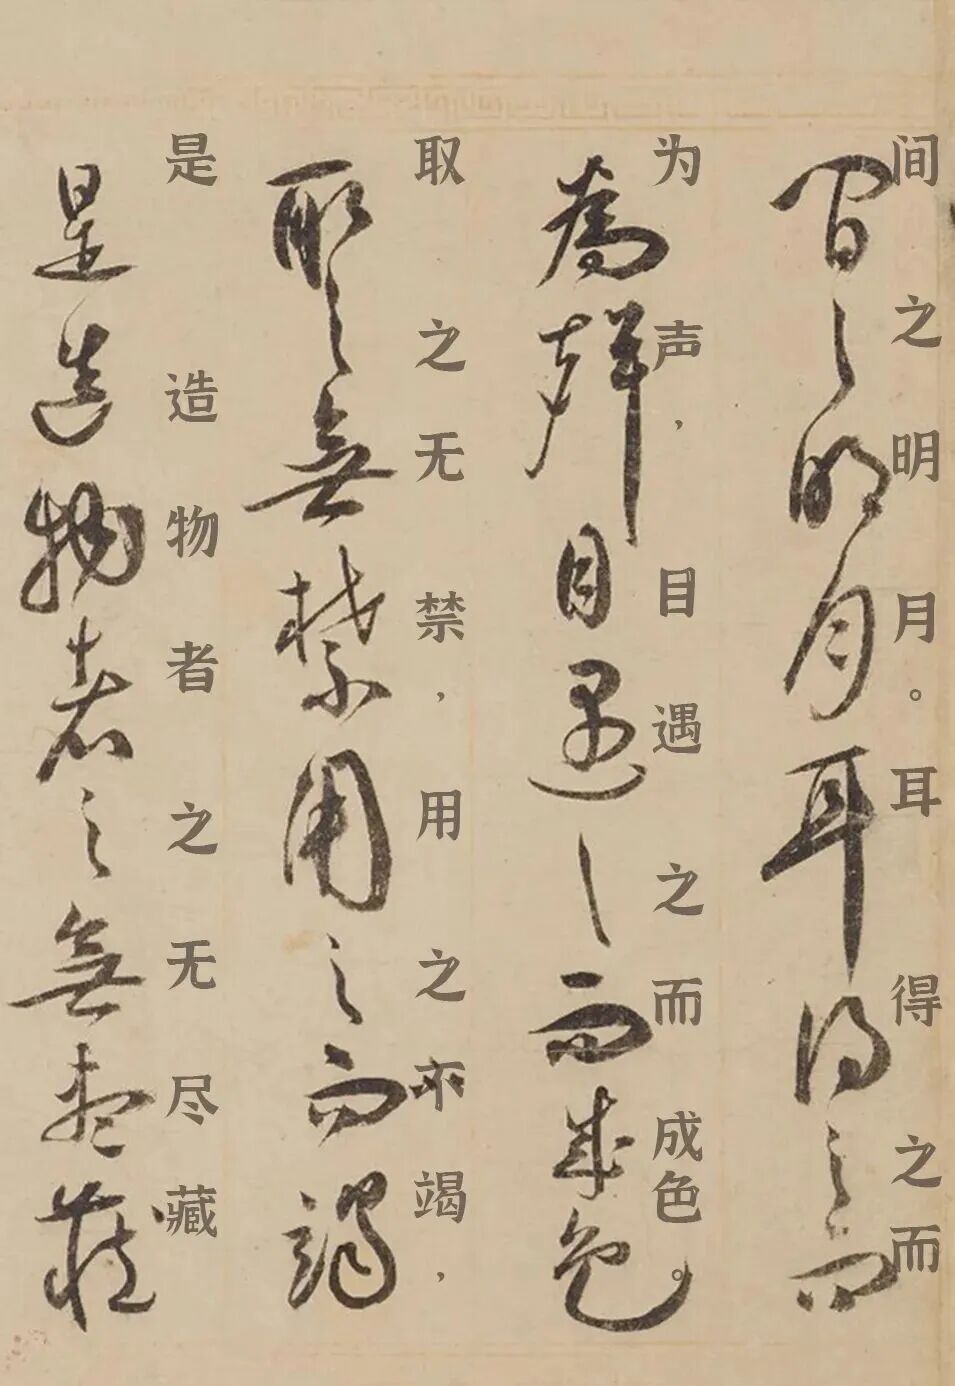 间之明月。耳得之而
間之明月耳得之而
为声，目遇之而成色。
為聲目遇之而成色
取之无禁，用之不竭，
取之無禁用之不竭
是造物者之无尽藏
是造物者之無盡藏